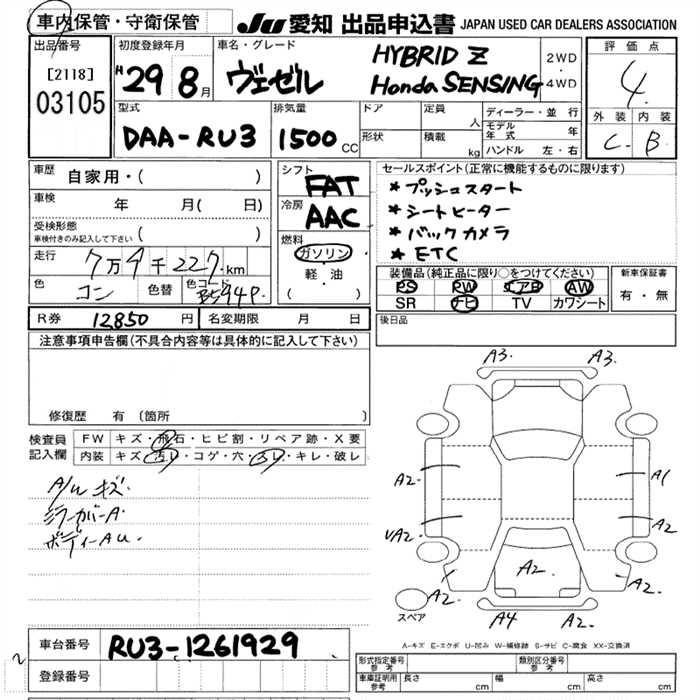 車内保管・守衛保管
JU 愛知 出品申込書 JAPAN USED CAR DEALERS ASSOCIATION
出品番号
[2118]
03105
初度登録年月
H 29 8月
車名・グレード
ヴェゼル
HYBRID Z
Honda SENSING
2WD
・
4WD
評価点
4
外装 内装
C B
型式
DAA-RU3
排気量
1500 CC
ドア
形状
定員
人
積載
kg
ディーラー・並行
モデル年式 年
ハンドル 左・右
車歴 自家用・( )
車検 年 月( 日)
受検形態
車検付きのみ記入して下さい ( )
走行 7万9千227km
色 コン 色替 色コード B594P
シフト
FAT
冷房
AAC
燃料
ガソリン
・
軽・油
( )
セールスポイント(正常に機能するものに限ります)
* プッシュスタート
* シートヒーター
* バックカメラ
* ETC
装備品(純正品に限り○をつけてください)
PS PW エアB AW
SR ナビ TV カワシート
新車保証書
有・無
R券 12850 円 名変期限 月 日
後日品
注意事項申告欄(不具合内容等は具体的に記入して下さい)
修復歴 有(箇所 )
検査員記入欄
FW キズ・飛石・ヒビ割・リペア跡・X要
内装 キズ・汚レ・コゲ・穴・スレ・キレ・破レ
A/W キズ
ミラーカバーA
ボディーAU
A3 A3
A2 A1
UA2 A2
A2 A2 A2
A4 A2
スペア
A-キズ E-エクボ U-凹み W-補修跡 S-サビ C-腐食 XX-交換済
車台番号 RU3-1261929
2
登録番号
形式指定番号
参考
類別区分番号
参考
車庫証明用
参考
長さ cm 幅 cm 高さ cm